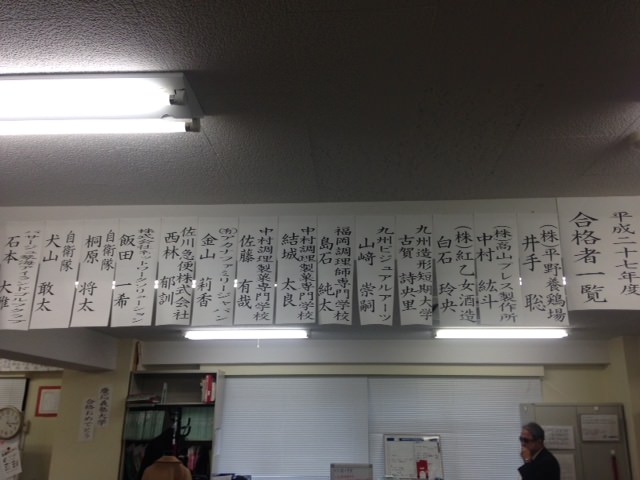 平成二十七年度
合格者一覧
(株)平野養鶏場
井手 聡
(株)高山プレス製作所
中村 紘斗
(株)紅乙女酒造
白石 玲央
九州造形短期大学
古賀 詩央里
九州ビジュアルアーツ
山﨑 崇嗣
福岡調理師専門学校
島石 純太
中村調理製菓専門学校
結城 太良
中村調理製菓専門学校
佐藤 有哉
金山 莉香
佐川急便株式会社
西林 郁訓
飯田 一希
自衛隊
桐原 将太
自衛隊
犬山 敢太
石本 大雅
慶応義塾大学
合格おめでとう